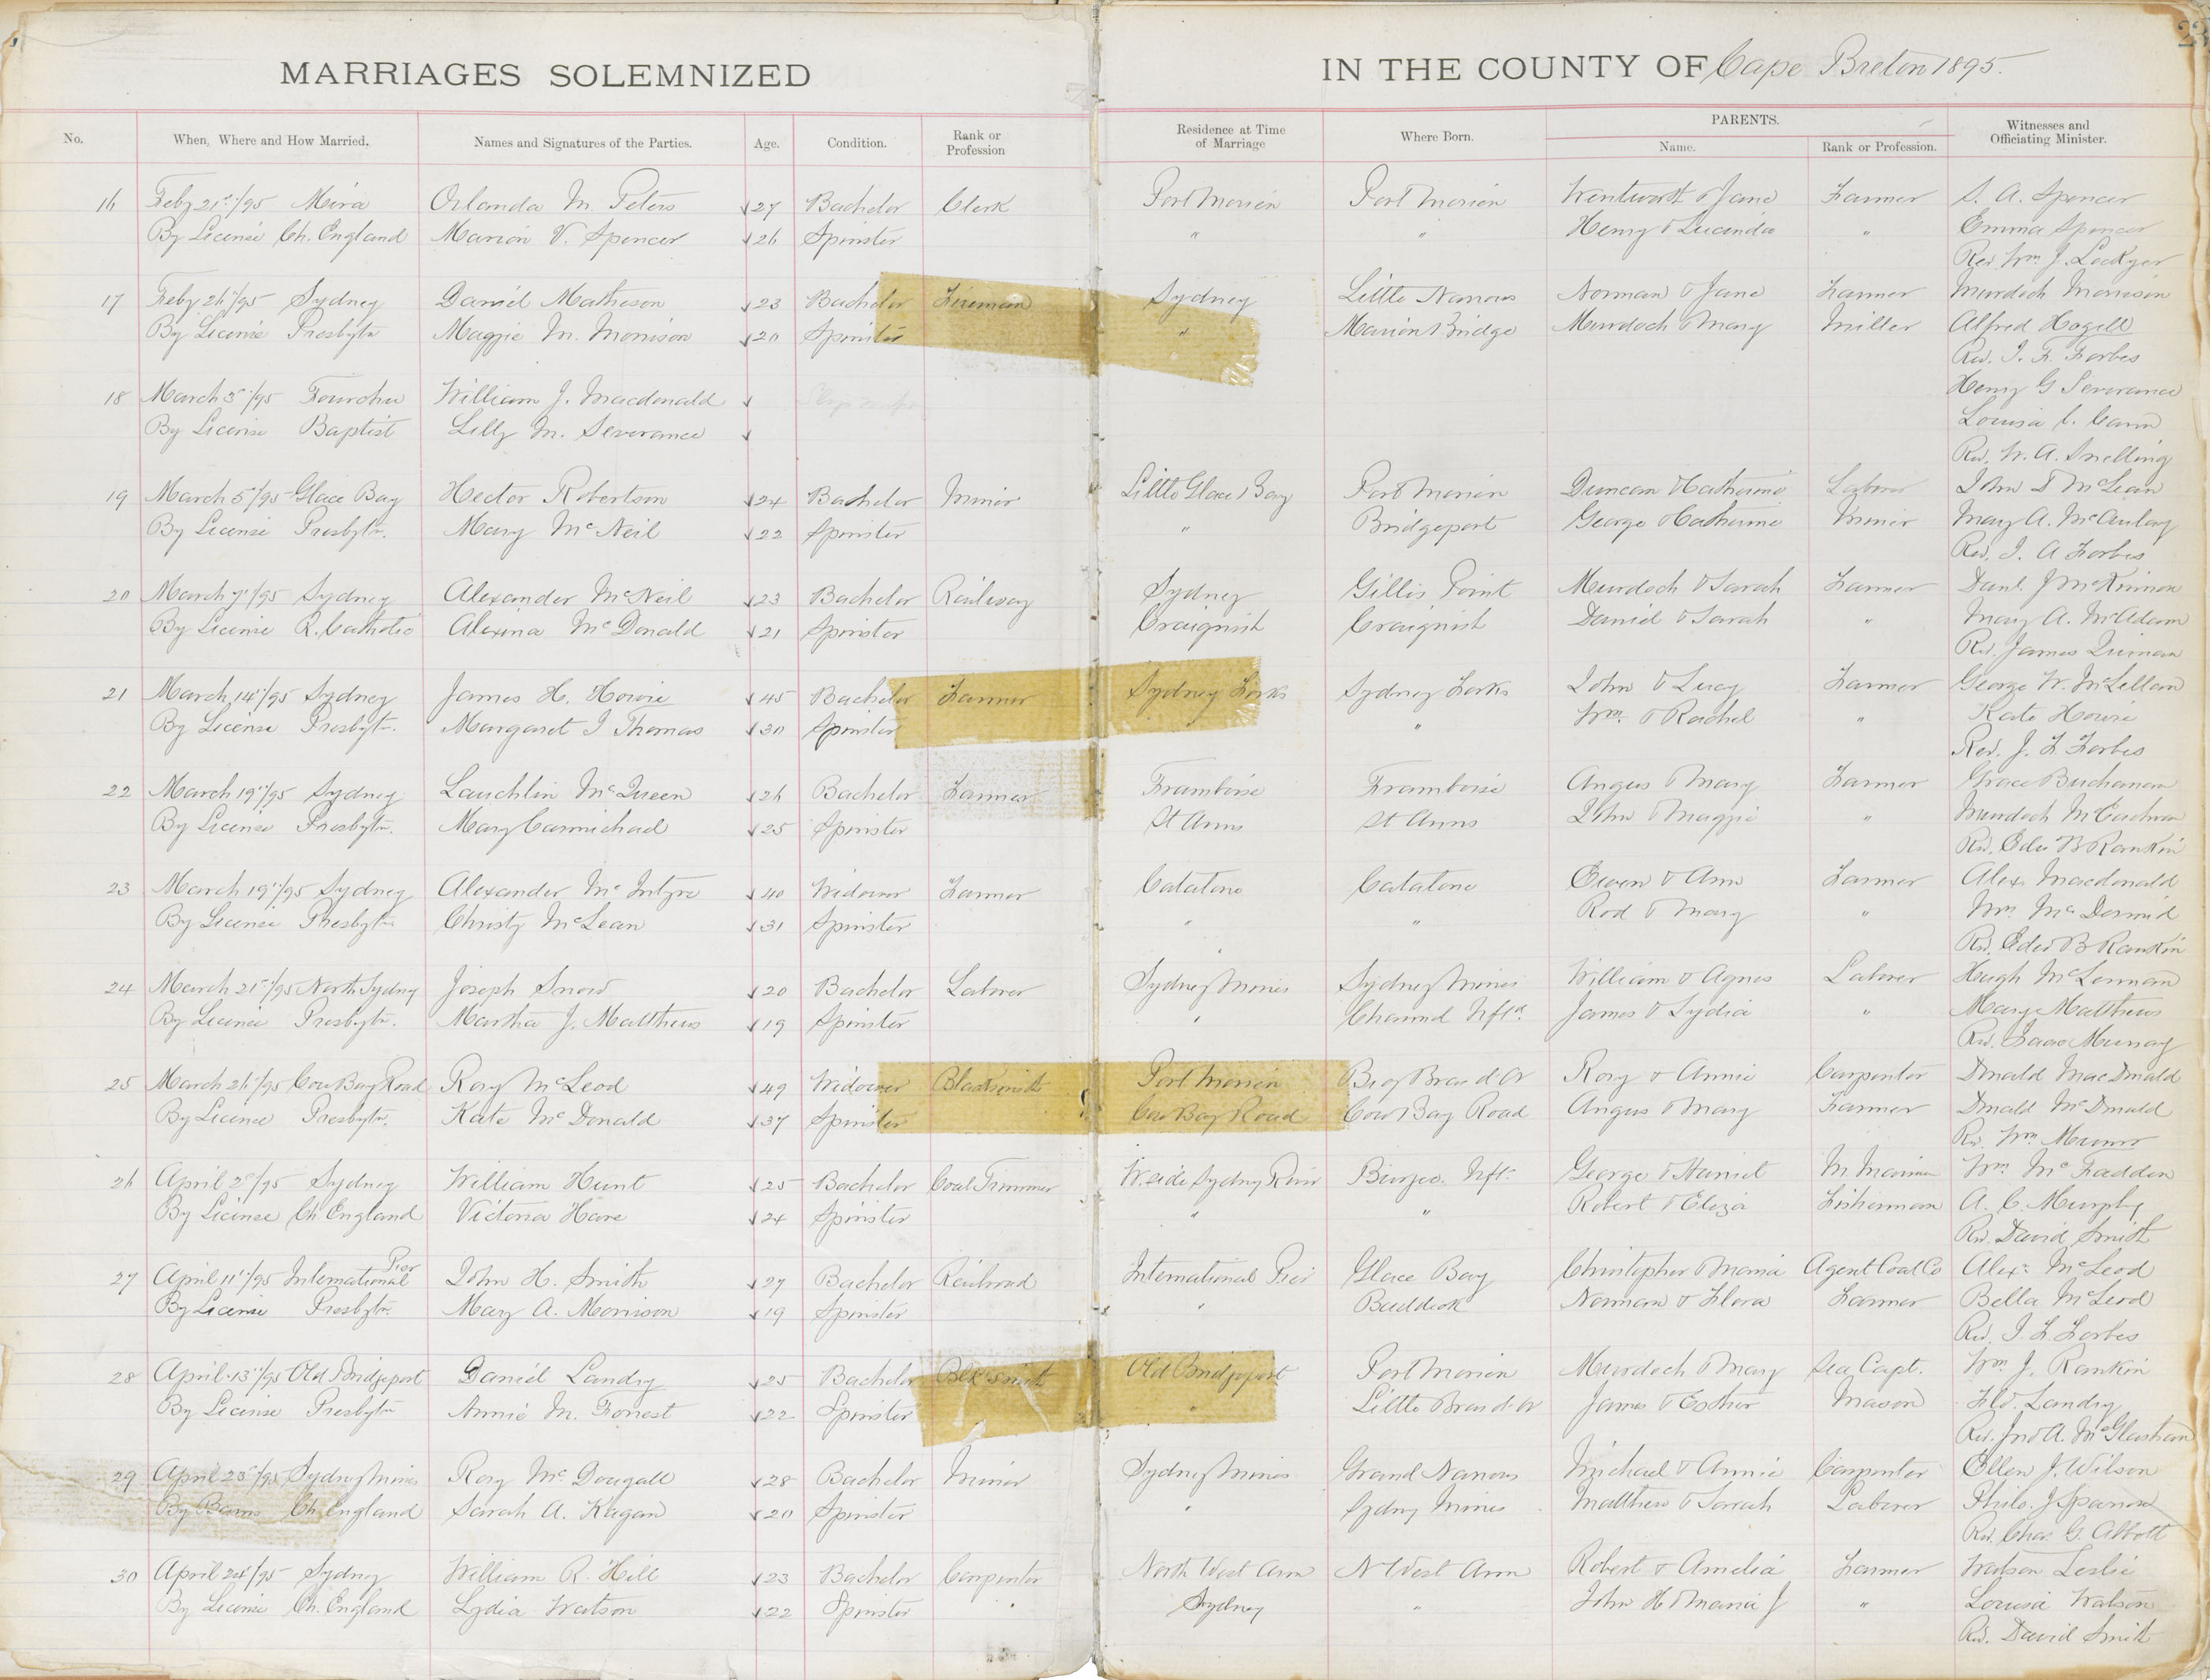 23
MARRIAGES SOLEMNIZED IN THE COUNTY OF Cape Breton 1895.
No. When, Where and How Married. Names and Signatures of the Parties. Age. Condition. Rank or Profession Residence at Time of Marriage Where Born. PARENTS. Name. Rank or Profession. Witnesses and Officiating Minister.
16 Feby 21st/95 Mira Orlanda M. Peters 27 Bachelor Clerk Port Morien Port Morien Wentworth & Jane Farmer S. A. Spencer
By License Ch. England Marion V. Spencer 26 Spinster " " Henry & Lucinda " Emma Spencer
Rev. Wm. J. Lockyer
17 Feby 26"/95 Sydney Daniel Matheson 23 Bachelor Fireman Sydney Little Narrows Norman & Jane Farmer Murdoch Morrison
By License Presbytn Maggie M. Morrison 20 Spinster " Marion Bridge Murdoch & Mary Miller Alfred Hogell
Rev. J. F. Forbes
18 March 3"/95 Fourchu William J. Macdonald Henry G Severance
By License Baptist Lilly M. Severance Louisa C. Cann
Rev. W. A. Snelling
19 March 5"/95 Glace Bay Hector Robertson 24 Bachelor Minor Little Glace Bay Port Morien Duncan & Catherine Laborer John D McLean
By License Presbytn. Mary McNeil 22 Spinster " Bridgeport George & Catherine Minor Mary A. McAulay
Rev. J. A Forbes
20 March 7"/95 Sydney Alexander McNeil 23 Bachelor Railway Sydney Gillis Point Murdoch & Sarah Farmer Danl. J McKinnon
By License R. Catholic Alexina McDonald 21 Spinster Craignish Craignish Daniel & Sarah " Mary A. McAdam
Rev. James Quinan
21 March 14"/95 Sydney James H. Howie 45 Bachelor Farmer Sydney Forks Sydney Forks John & Lucy Farmer George W. McLellan
By License Presbytn. Margaret J Thomas 30 Spinster " Wm. & Rachel " Kate Howie
Rev. J. F. Forbes
22 March 19"/95 Sydney Lauchlin McQueen 26 Bachelor Farmer Framboise Framboise Angus & Mary Farmer Grace Buchanan
By License Presbytn. Mary Carmichael 25 Spinster St Anns St Anns John & Maggie " Murdoch McEachern
Rev. Edw B Rankin
23 March 19"/95 Sydney Alexander McIntyre 40 Widower Farmer Catalone Catalone Ewen & Ann Farmer Alex. Macdonald
By License Presbytn Christy McLean 31 Spinster " " Rod & Mary " Wm. McDermid
Rev. Edw B Rankin
24 March 21st/95 North Sydney Joseph Snow 20 Bachelor Laborer Sydney Mines Sydney Mines William & Agnes Laborer Hugh McLennan
By License Presbytn. Martha J. Matthews 19 Spinster " Channel Nfld. James & Lydia " Mary Matthews
Rev. Isaac Murray
25 March 26"/95 Cow Bay Road Rory McLeod 49 Widower Blacksmith Port Morien Big Bras d'Or Rory & Annie Carpenter Donald MacDonald
By License Presbytn. Kate McDonald 37 Spinster Cow Bay Road Cow Bay Road Angus & Mary Farmer Donald McDonald
Rev. Wm. Munro
26 April 2d/95 Sydney William Hunt 25 Bachelor Coal Trimmer W. side Sydney River Burgeo. Nfld. George & Harriet M Mariner Wm. McFadden
By License Ch England Victoria Hare 24 Spinster " " Robert & Eliza Fisherman A. C. Murphy
Rev. David Smith
27 April 11"/95 International Pier John H. Smith 27 Bachelor Railroad International Pier Glace Bay Christopher & Maria Agent Coal Co Alex. McLeod
By License Presbytn. Mary A. Morrison 19 Spinster " Baddeck Norman & Flora Farmer Bella McLeod
Rev. J. F. Forbes
28 April 13"/95 Old Bridgeport Daniel Landry 25 Bachelor Blksmith Old Bridgeport Port Morien Murdoch & Mary Sea Capt. Wm J. Rankin
By License Presbytn Annie M. Forrest 22 Spinster " Little Bras d'Or James & Esther Mason Flo. Landry
Rev. Jno A. McGlashan
29 April 23d/95 Sydney Mines Rory McDougall 28 Bachelor Minor Sydney Mines Grand Narrows Michael & Annie Carpenter Ellen J. Wilson
By Banns Ch England Sarah A. Kagan 20 Spinster " Sydney Mines Matthew & Sarah Laborer Philo. J Sparrow
Rev. Chas G. Abbott
30 April 24"/95 Sydney William R. Hill 23 Bachelor Carpenter North West Arm N West Arm Robert & Amelia Farmer Watson Leslie
By License Ch. England Lydia Watson 22 Spinster Sydney " John H & Maria J " Louisa Watson
Rev. David Smith